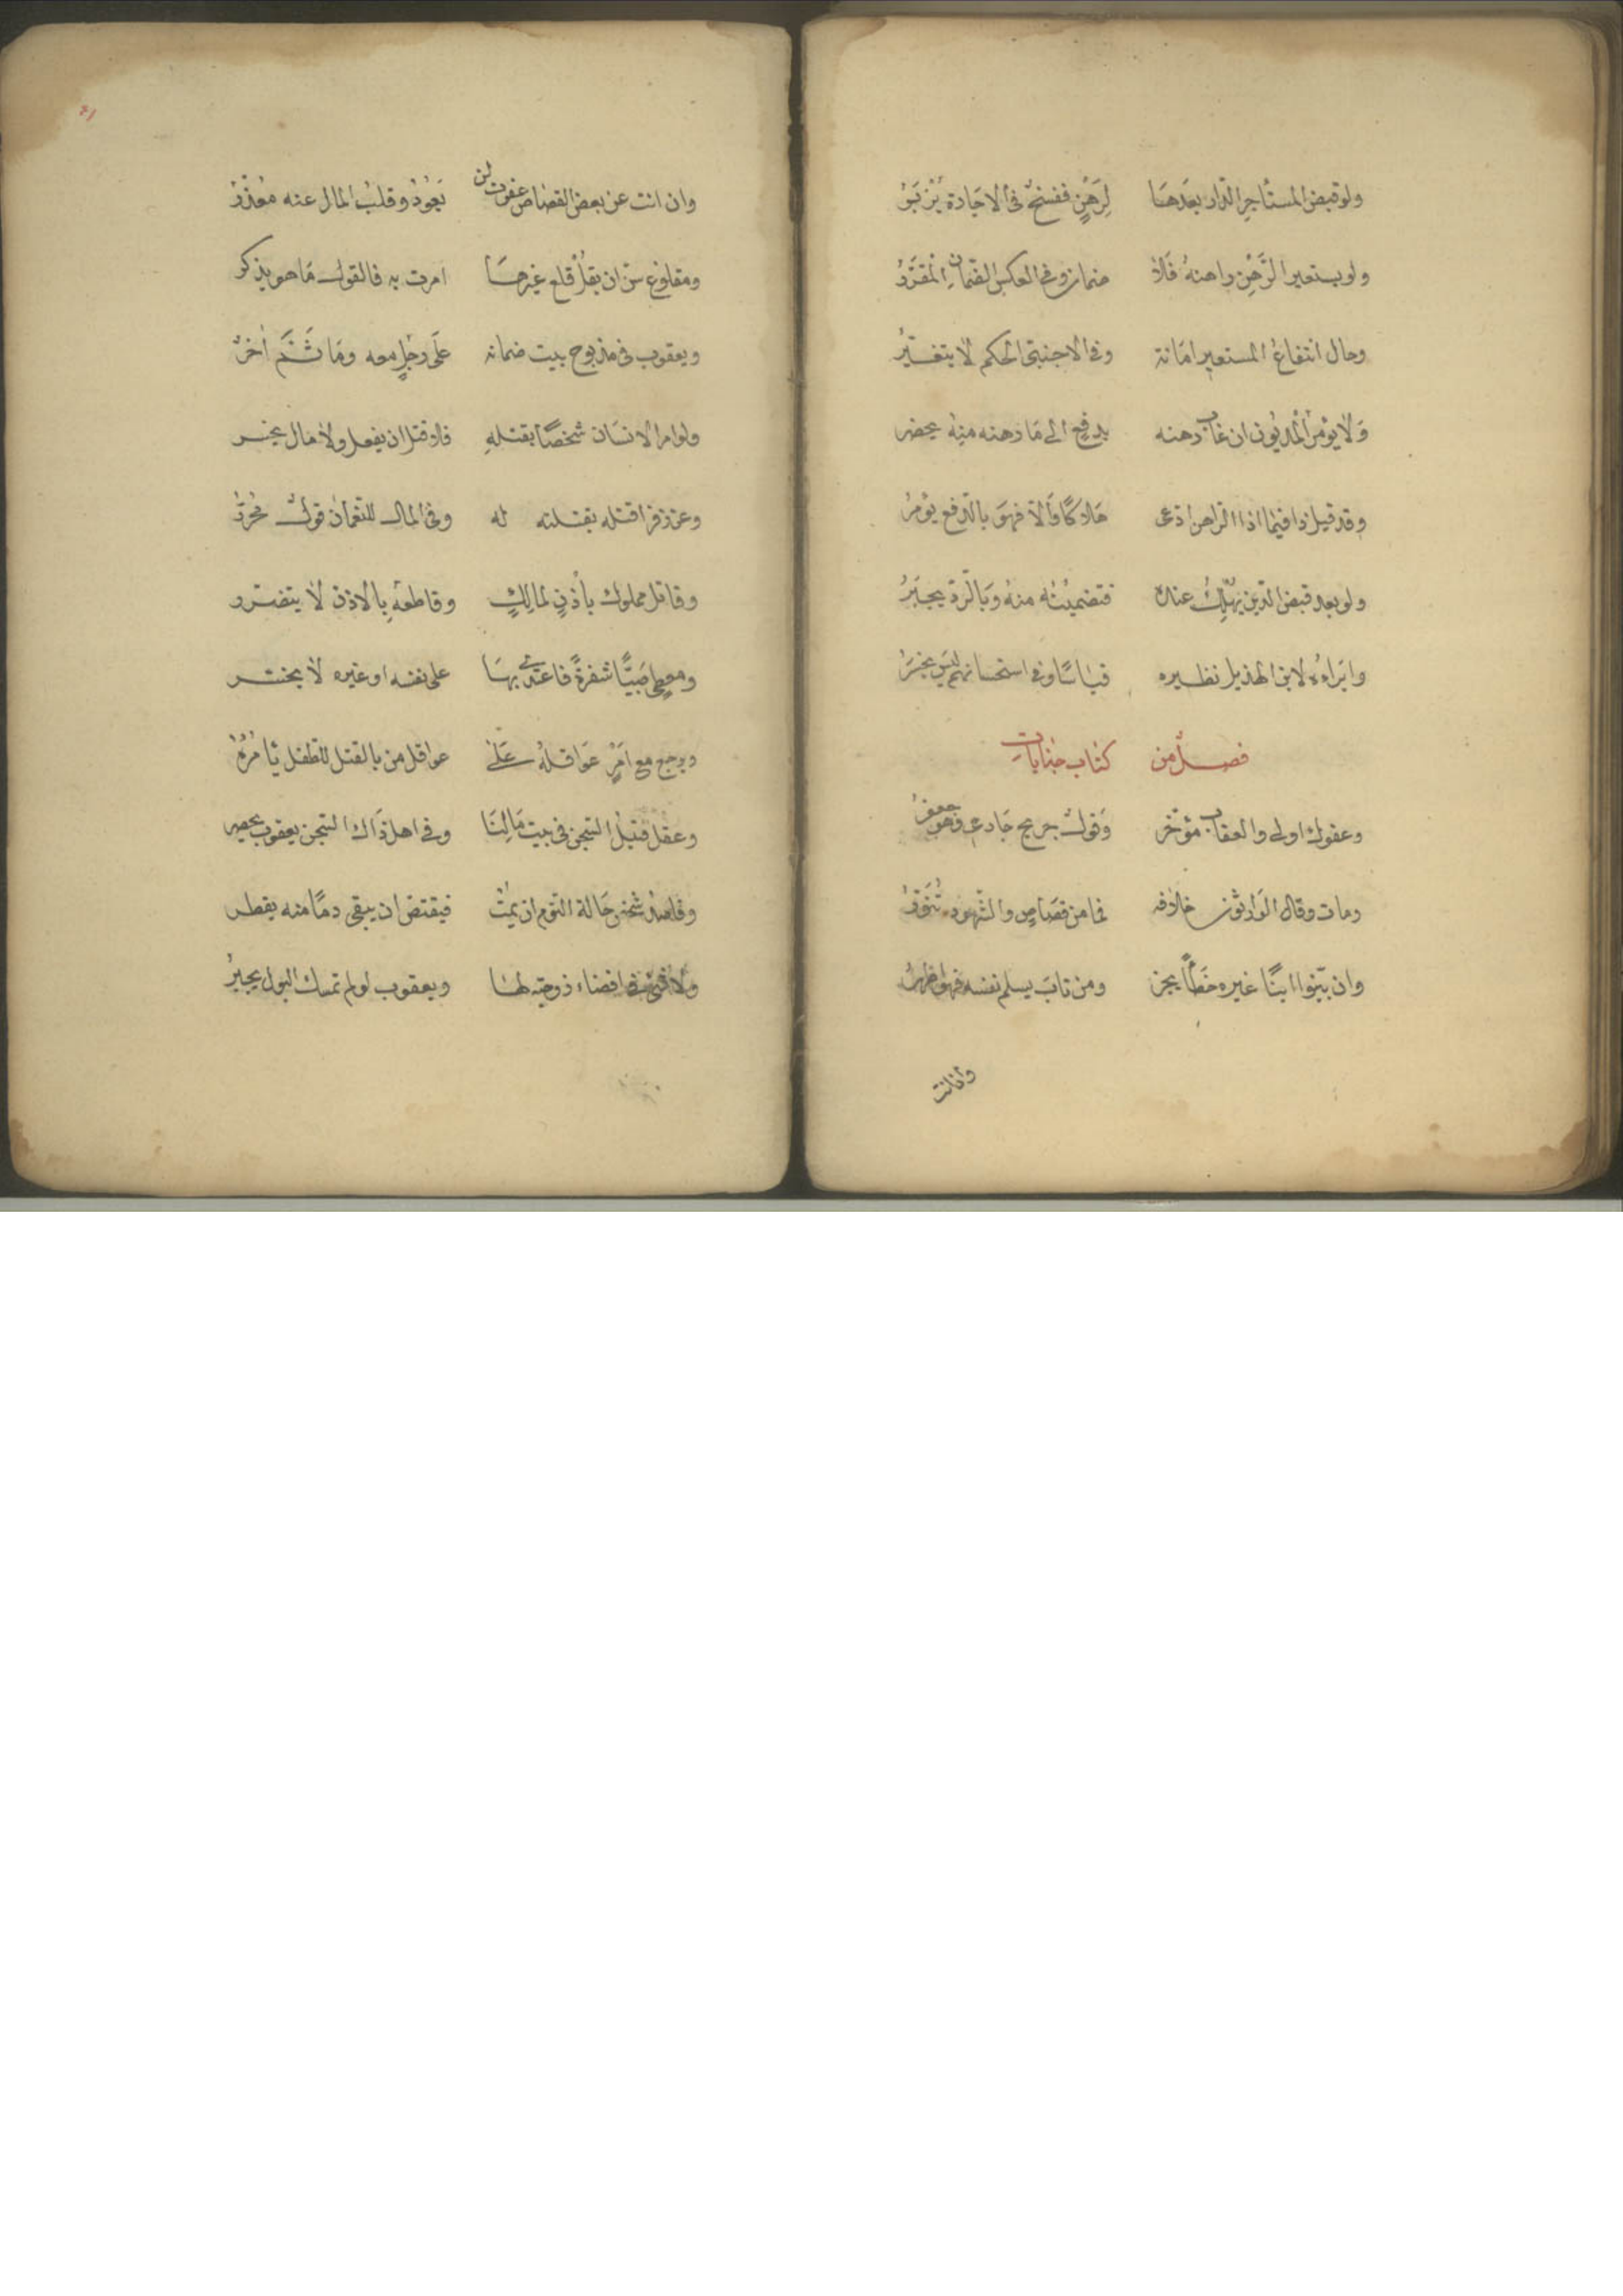 ولو قبض المستأجر الدار بعدها لرهن ففسخ في الاجارة
ولو يستعير الرهن راهنه فلا ضمان وفي العكس الضمان المقرر
وحال انتفاع المستعير امانة وفي الاجنبي الحكم لا يتغير
ولا يؤمر المديون ان غاب رهنه بدفع الى ما رهنه منه يحضر
وقد قيل ذا فيما اذا الراهن ادعى هلاكا والا فهو بالدفع يؤمر
ولو بعد قبض الدين يهلك عنده فتضمينه منه وبالرد يجبر
وابراؤه لابن الهذيل نظيره قياسا وفي استحسانهم ليس يخسر
فصل من كتاب جنايات
وعفوك اولى والعقاب مؤخر وقول جريح جارحي وهو جعفر
ومات وقال الوارثون خلافه فما من قصاص والشهود تزور
وان بينوا ابنا غيره خطأ يجز ومن تاب يسلم نفسه فهو اطهر
وان انت
وان انت عن بعض القصاص عفوت لن يعود وقلب المال عنه معذر
ومقلوع سن ان يقل قلع غيرها امرت به فالقول ما هو يذكر
ويعقوب في مذبوح بيت ضمانه على رجل معه وما ثم اخر
ولو امر الانسان شخصا بقتله فلو قتل ان يفعل ولا مال يخسر
وعن زفر اقتله بقتلته له وفي المال للنعمان قول محرر
وقاتل مملوك باذن لمالك وقاطعه بالاذن لا يتضرر
ومعطي صبيا شفرة فاعتدى بها على نفسه او غيره لا يخسر
ويرجع مع امر عواقله على عواقل من بالقتل للطفل يامر
وعقل قتيل السجن في بيت مالنا وفي اهل ذاك السجن يعقوب يحصر
وفاصد شخص حالة النوم ان يمت فيقتص ان يبقى دما منه يقطر
ولا شيء في افضاء زوجته لها ويعقوب لو لم تمسك البول يجبر